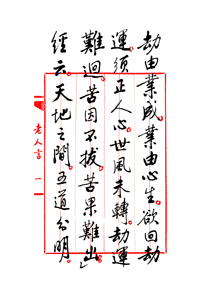 劫由業感業由心生欲回劫
運須正人心世風未轉劫運
難迴苦因不拔苦果難出
經云天地之間五道分明
老人言 一